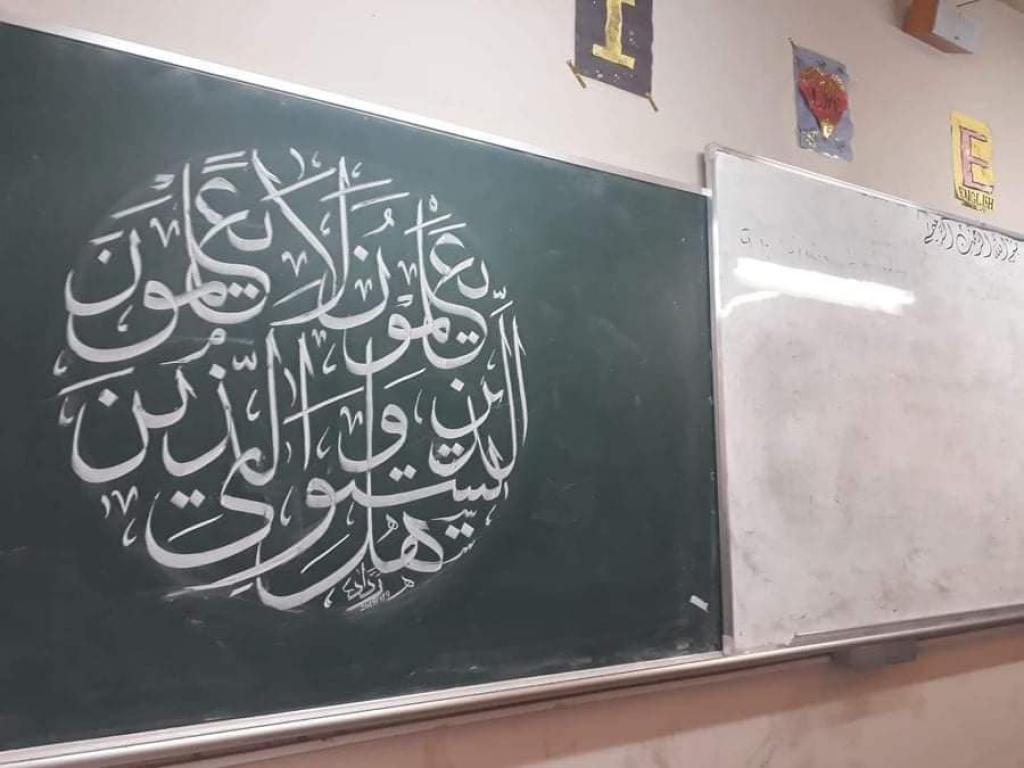 هل يستوي الذين يعلمون والذين لا يعلمون
I
E
ENGLISH
بسم الله الرحمن الرحيم